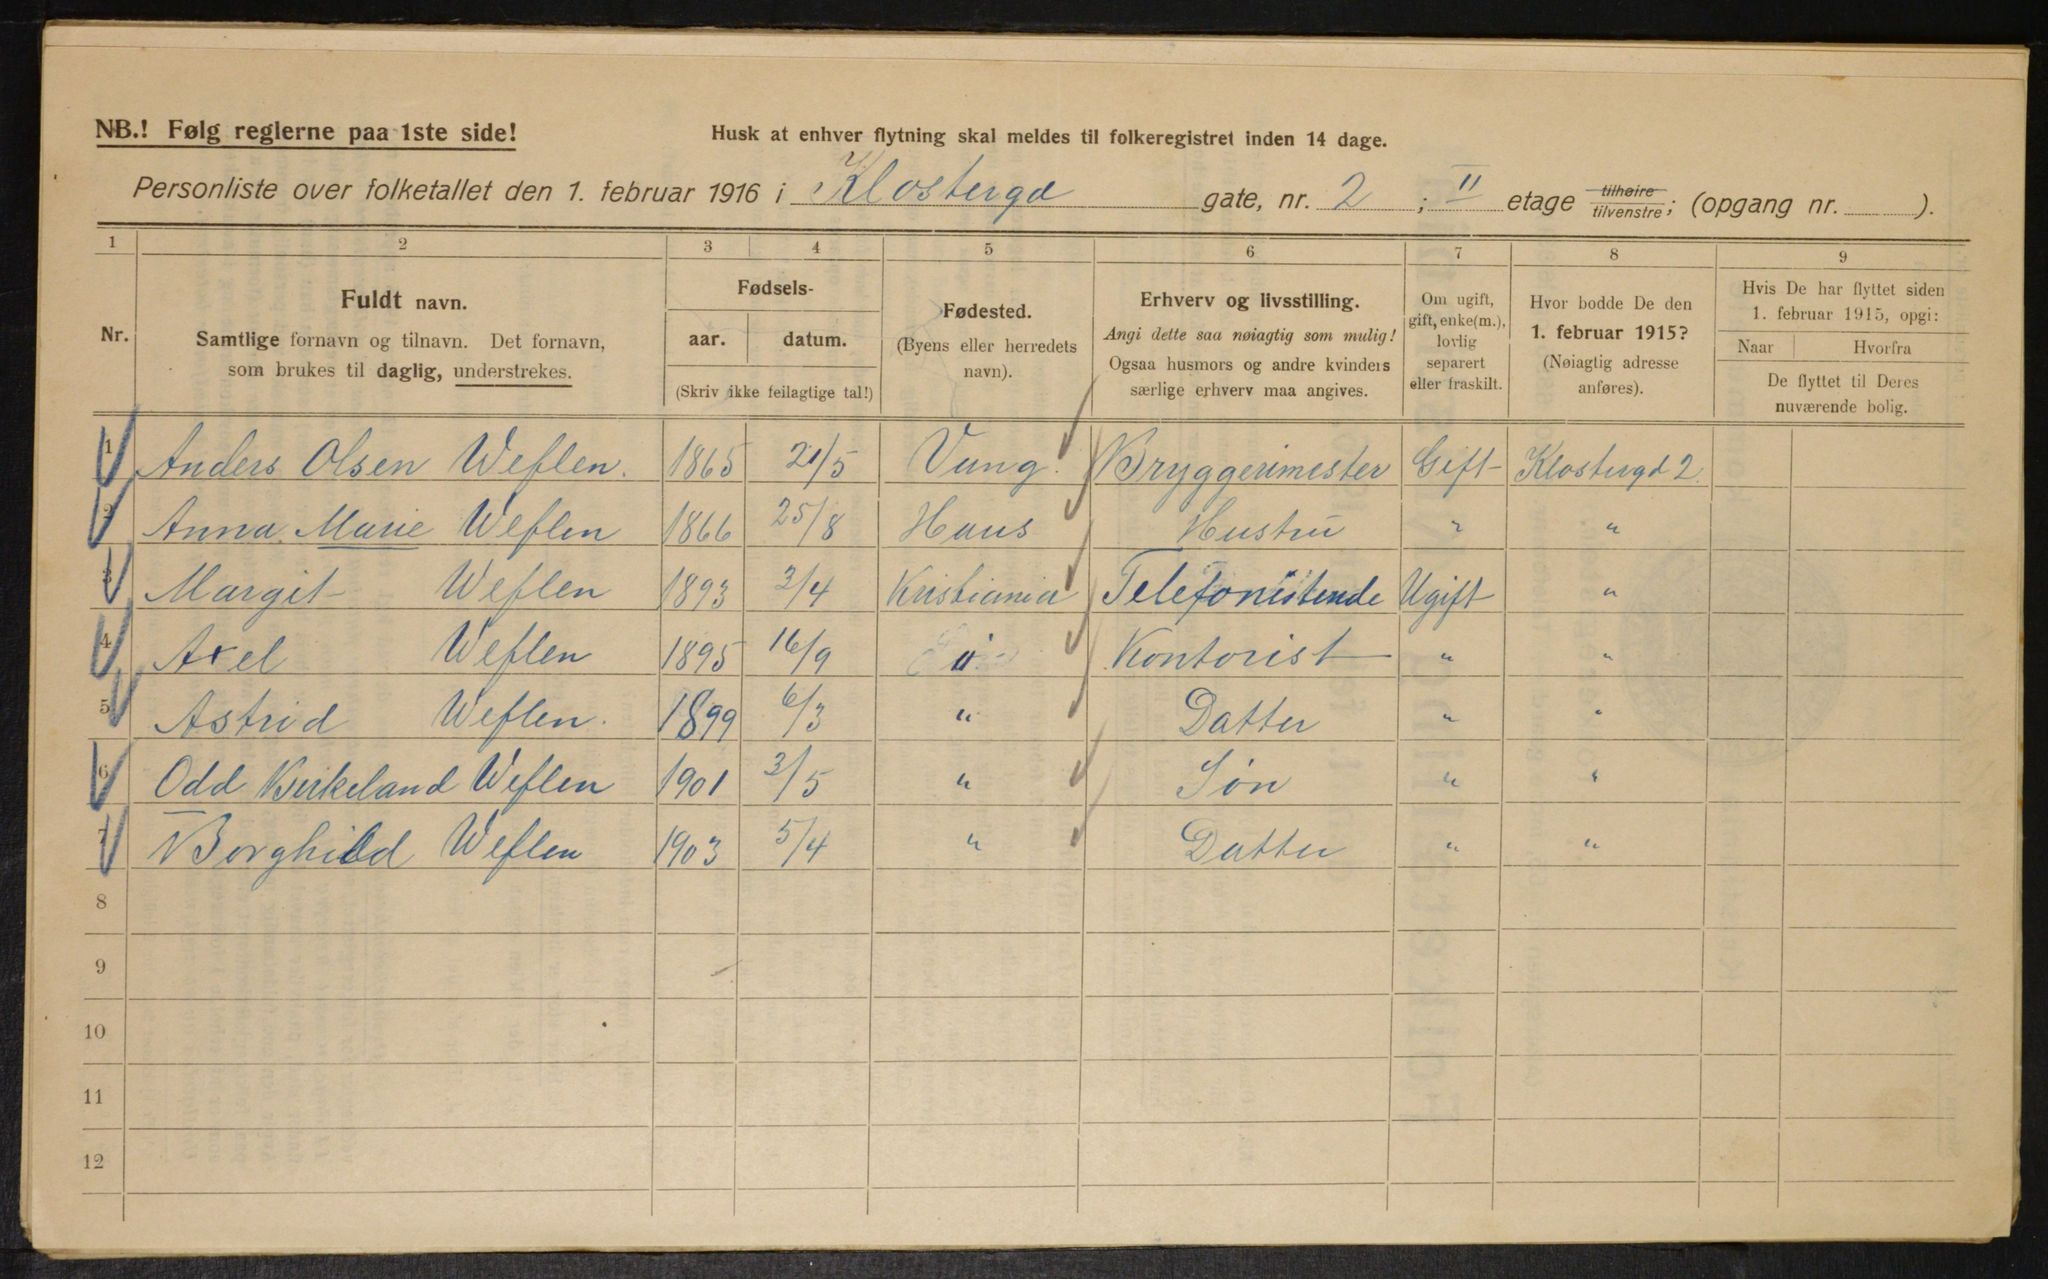 NB.! Følg reglerne paa 1ste side!
Husk at enhver flytning skal meldes til folkeregistret inden 14 dage.
Personliste over folketallet den 1. februar 1916 i Klostergd gate, nr. 2 ; II etage tilhøire tilvenstre; (opgang nr. ).
1 2 3 4 5 6 7 8 9
Nr.
Fuldt navn.
Samtlige fornavn og tilnavn. Det fornavn,
som brukes til daglig, understrekes.
Fødsels-
aar. datum.
(Skriv ikke feilagtige tal!)
Fødested.
(Byens eller herredets
navn).
Erhverv og livsstilling.
Angi dette saa nøiagtig som mulig!
Ogsaa husmors og andre kvinders
særlige erhverv maa angives.
Om ugift,
gift, enke(m.),
lovlig
separert
eller fraskilt.
Hvor bodde De den
1. februar 1915?
(Nøiagtig adresse
anføres).
Hvis De har flyttet siden
1. februar 1915, opgi:
Naar Hvorfra
De flyttet til Deres
nuværende bolig.
1 Anders Olsen Weflen. 1865 21/5 Vang. Bryggerimester Gift Klostergd 2.
2 Anna Marie Weflen 1866 25/8 Haus Hustru " "
3 Margit Weflen 1893 3/4 Kristiania Telefonistinde Ugift "
4 Axel Weflen 1895 16/9 " Kontorist " "
5 Astrid Weflen. 1899 6/3 " Datter " "
6 Odd Birkeland Weflen 1901 3/5 " Søn " "
7 Borghild Weflen 1903 5/4 " Datter " "
8
9
10
11
12